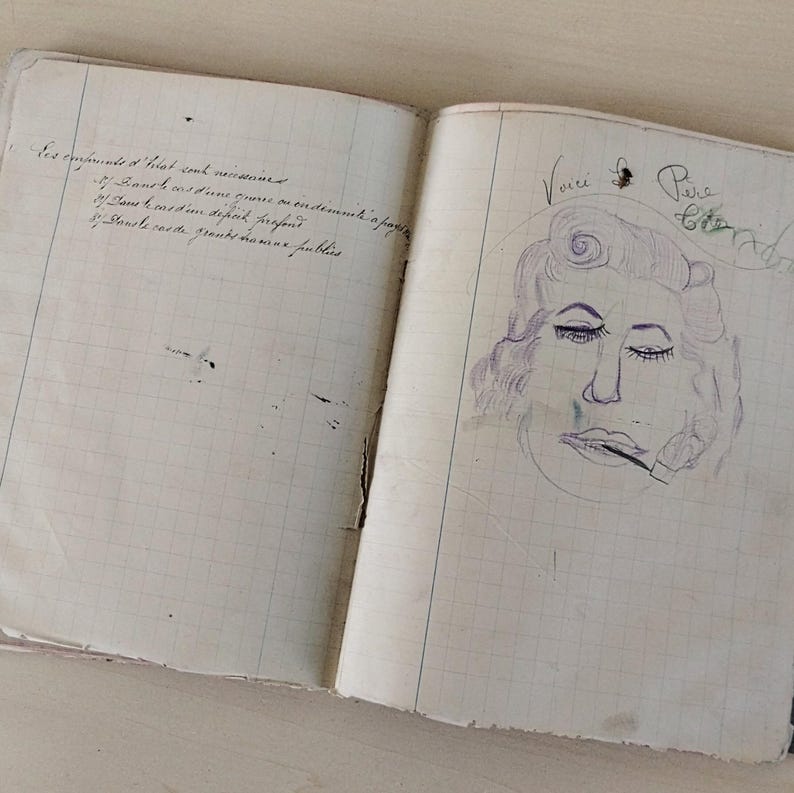 Les emprunts d'Etat sont nécessaires
1º/ Dans le cas d'une guerre ou indemnité à payer
2º/ Dans le cas d'un déficit profond
3º/ Dans le cas de grands travaux publics
Voici Le Père